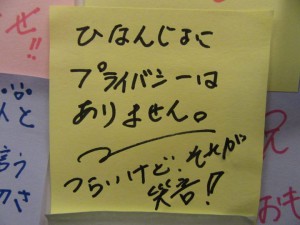 ひなんじょに
プライバシーは
ありません。
つらいけど、それが
笑音!!
ぜ!!
人と
言う
おも